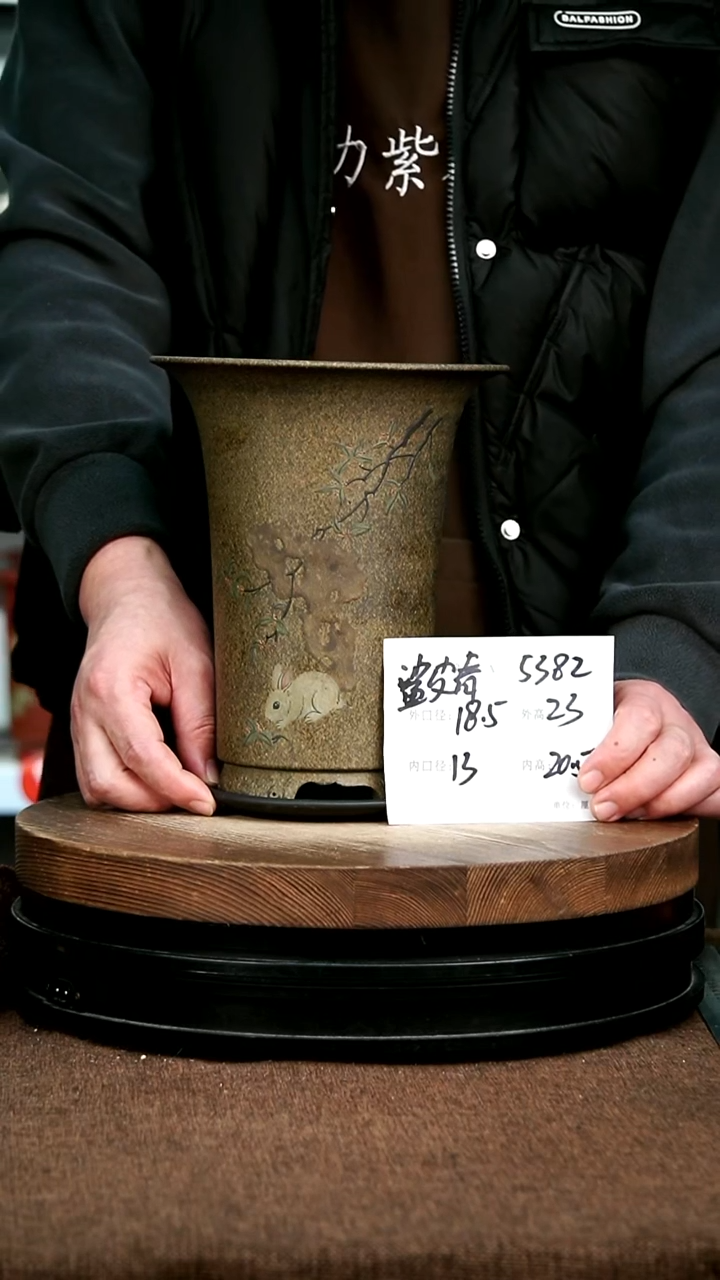 BALFASHION
力紫
鲨皮青 5382
外口径: 18.5 外高: 23
内口径: 13 内高: 20.5
单位: 厘